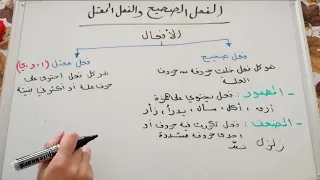 الفعل الصحيح والفعل المعتل
الأفعال
فعل صحيح
هو كل فعل خلت حروفه من حروف
العلة
- المهموز: فعل يحتوي على همزة
أكل، سأل، يدرأ، زأر
- المضعف: فعل تكررت فيه حروف أو
إحدى حروفه مشددة
زلزل شدّ
فعل معتل (ا، و، ي)
هو كل فعل احتوى على
حرف علة أو أكثر في بنيته